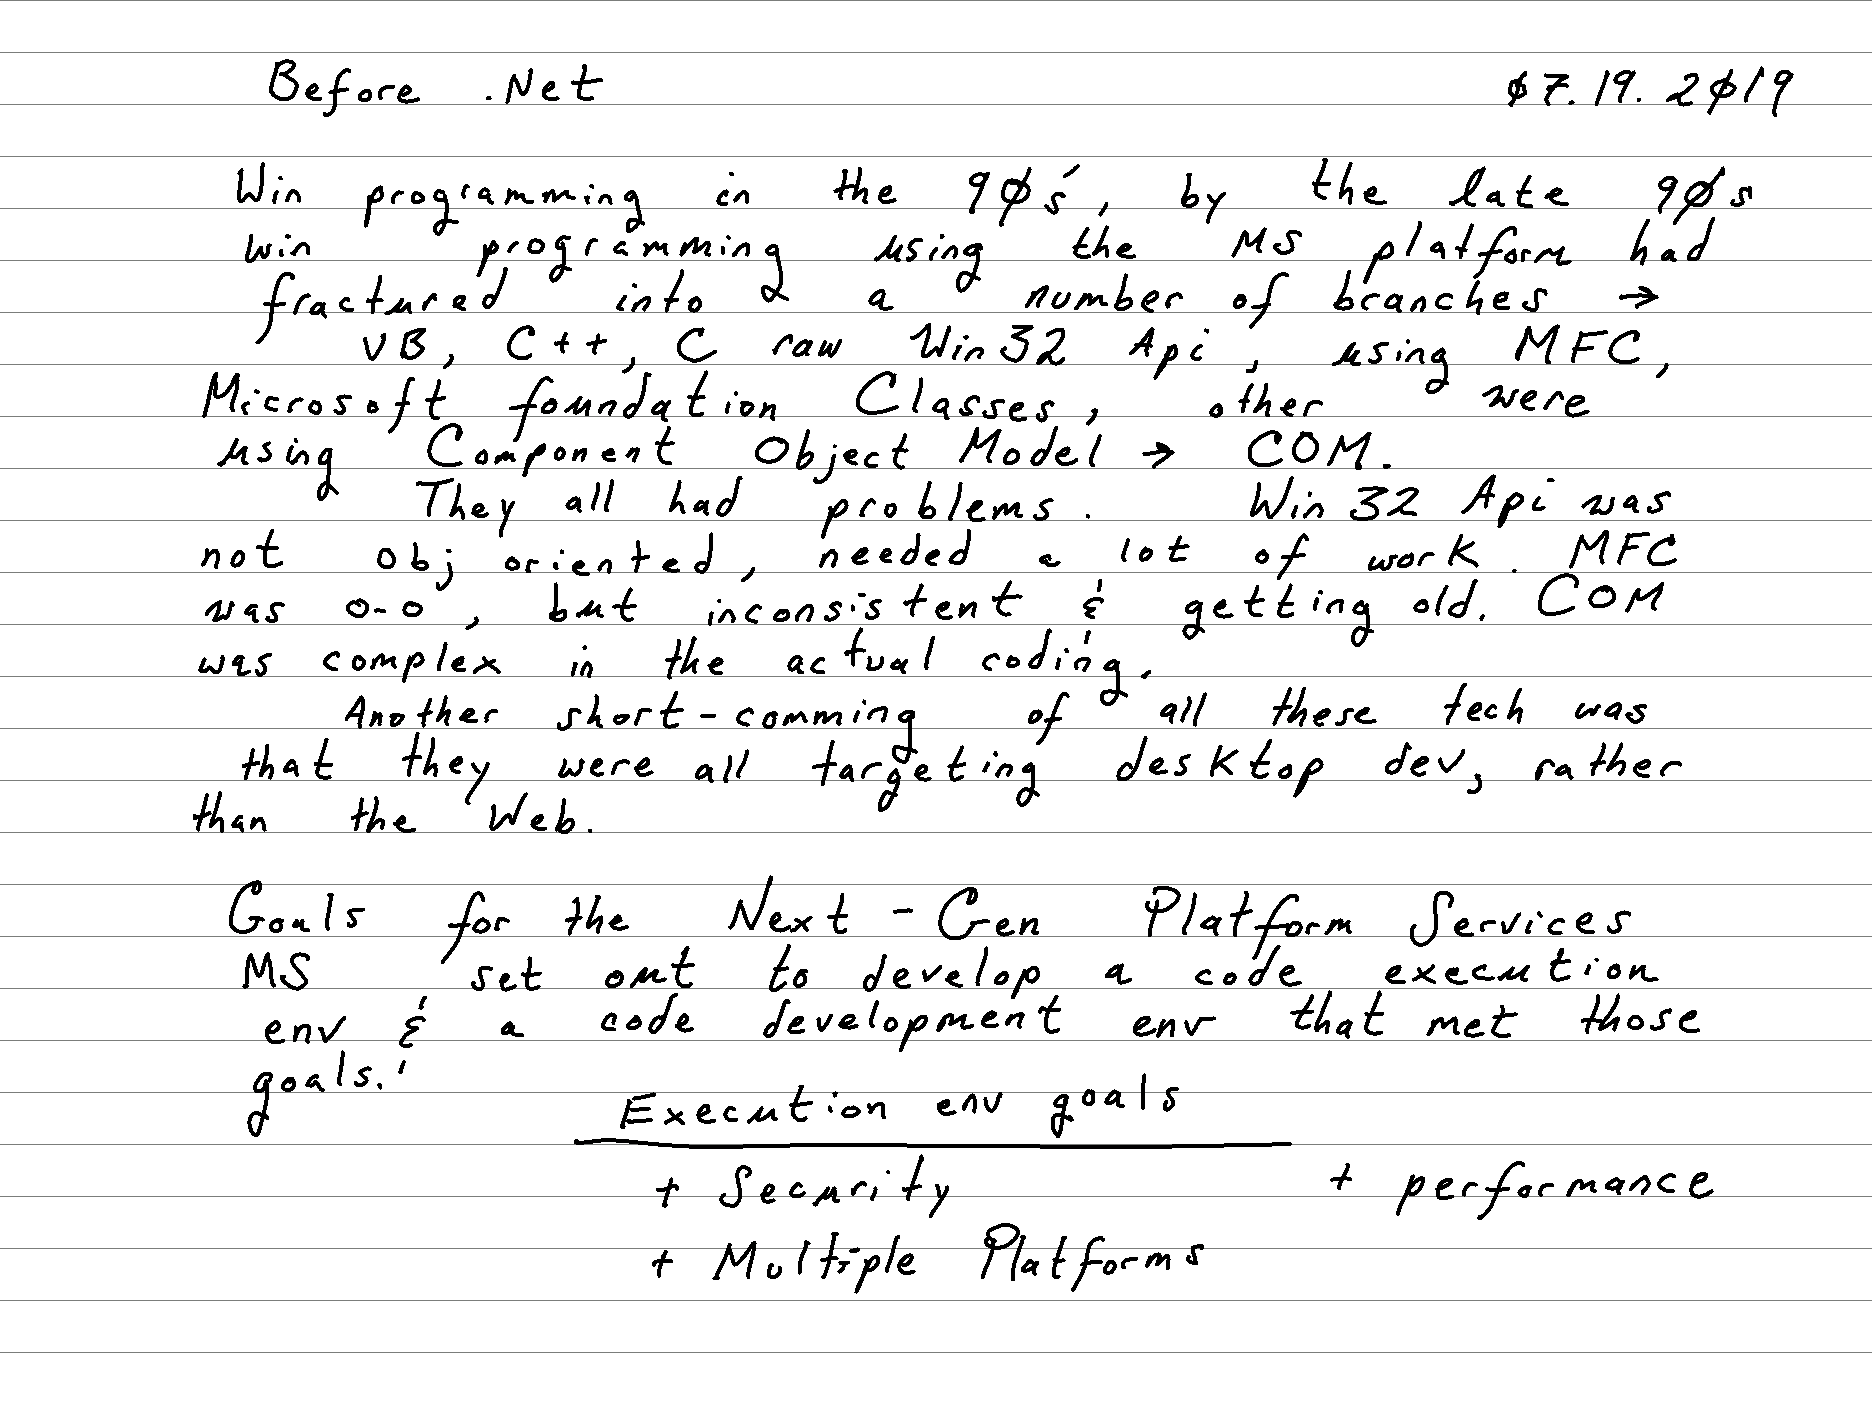 Before .Net 07.19.2019
Win programming in the 90's, by the late 90s
win programming using the MS platform had
fractured into a number of branches →
VB, C++, C raw Win32 Api, using MFC,
Microsoft foundation Classes, other were
using Component Object Model → COM.
They all had problems. Win 32 Api was
not obj oriented, needed a lot of work. MFC
was o-o, but inconsistent & getting old. COM
was complex in the actual coding.
Another short-comming of all these tech was
that they were all targeting desktop dev, rather
than the Web.
Goals for the Next-Gen Platform Services
MS set out to develop a code execution
env & a code development env that met those
goals.'
Execution env goals
+ Security + performance
+ Multiple Platforms